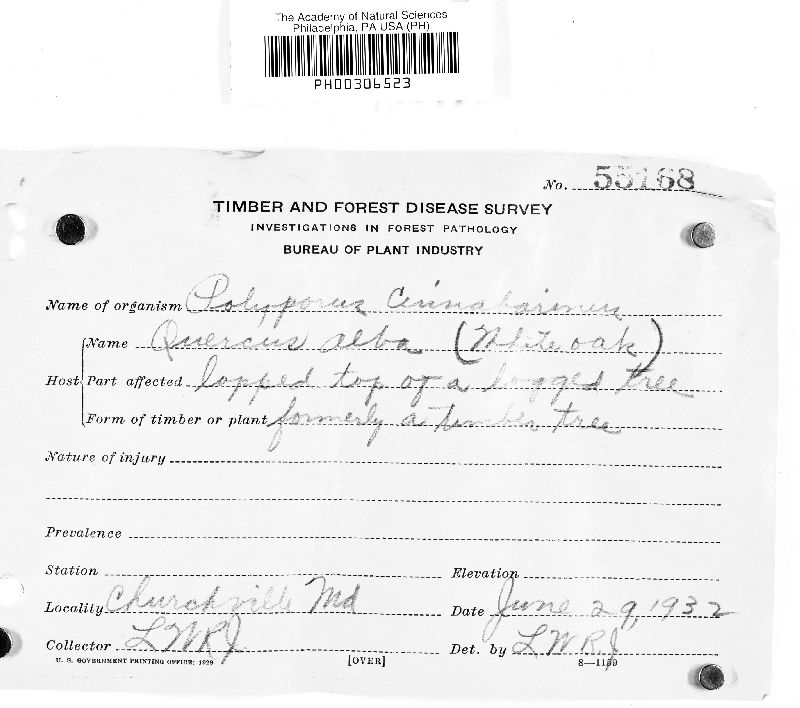 The Academy of Natural Sciences
Philadelphia, PA USA (PH)
PH00306523
No. 55168
TIMBER AND FOREST DISEASE SURVEY
INVESTIGATIONS IN FOREST PATHOLOGY
BUREAU OF PLANT INDUSTRY
Name of organism Polyporus Cinnabarinus
Host Name Quercus alba (White oak)
Part affected lopped top of a logged tree
Form of timber or plant formerly a timber tree
Nature of injury
Prevalence
Station Elevation
Locality Churchville Md Date June 29, 1932
Collector LWRJ Det. by LWRJ
U. S. GOVERNMENT PRINTING OFFICE: 1929 [OVER] 8—1159